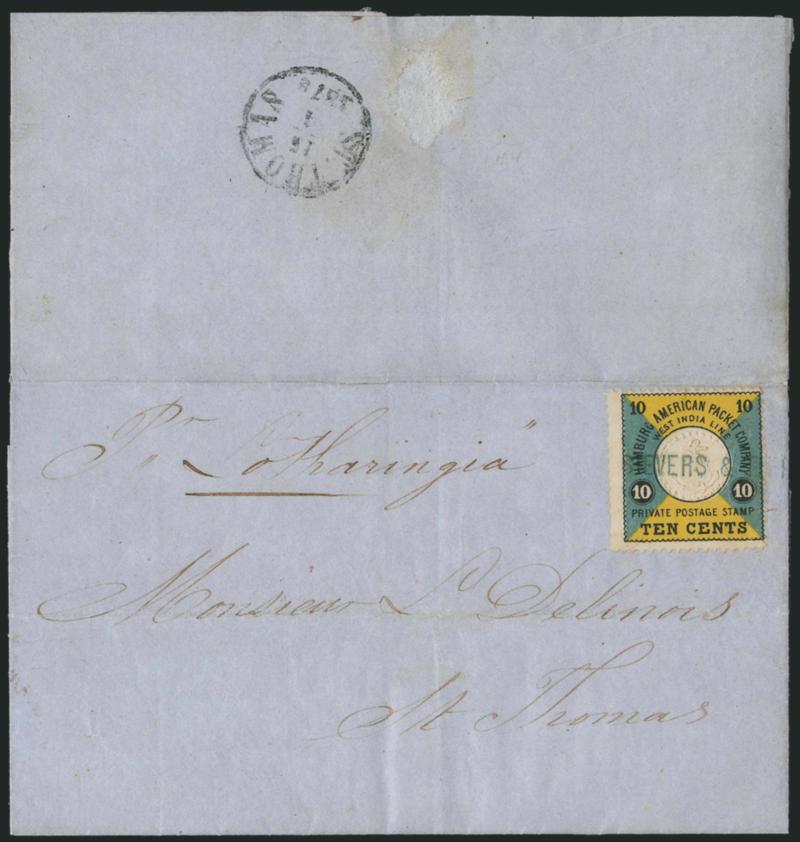 ST. THOMAS
187
Pr "Lotharingia"
10 10
HAMBURG AMERICAN PACKET COMPANY
WEST INDIA LINE
EVERS &
10 10
PRIVATE POSTAGE STAMP
TEN CENTS
Monsieur Ls Delinois
St Thomas